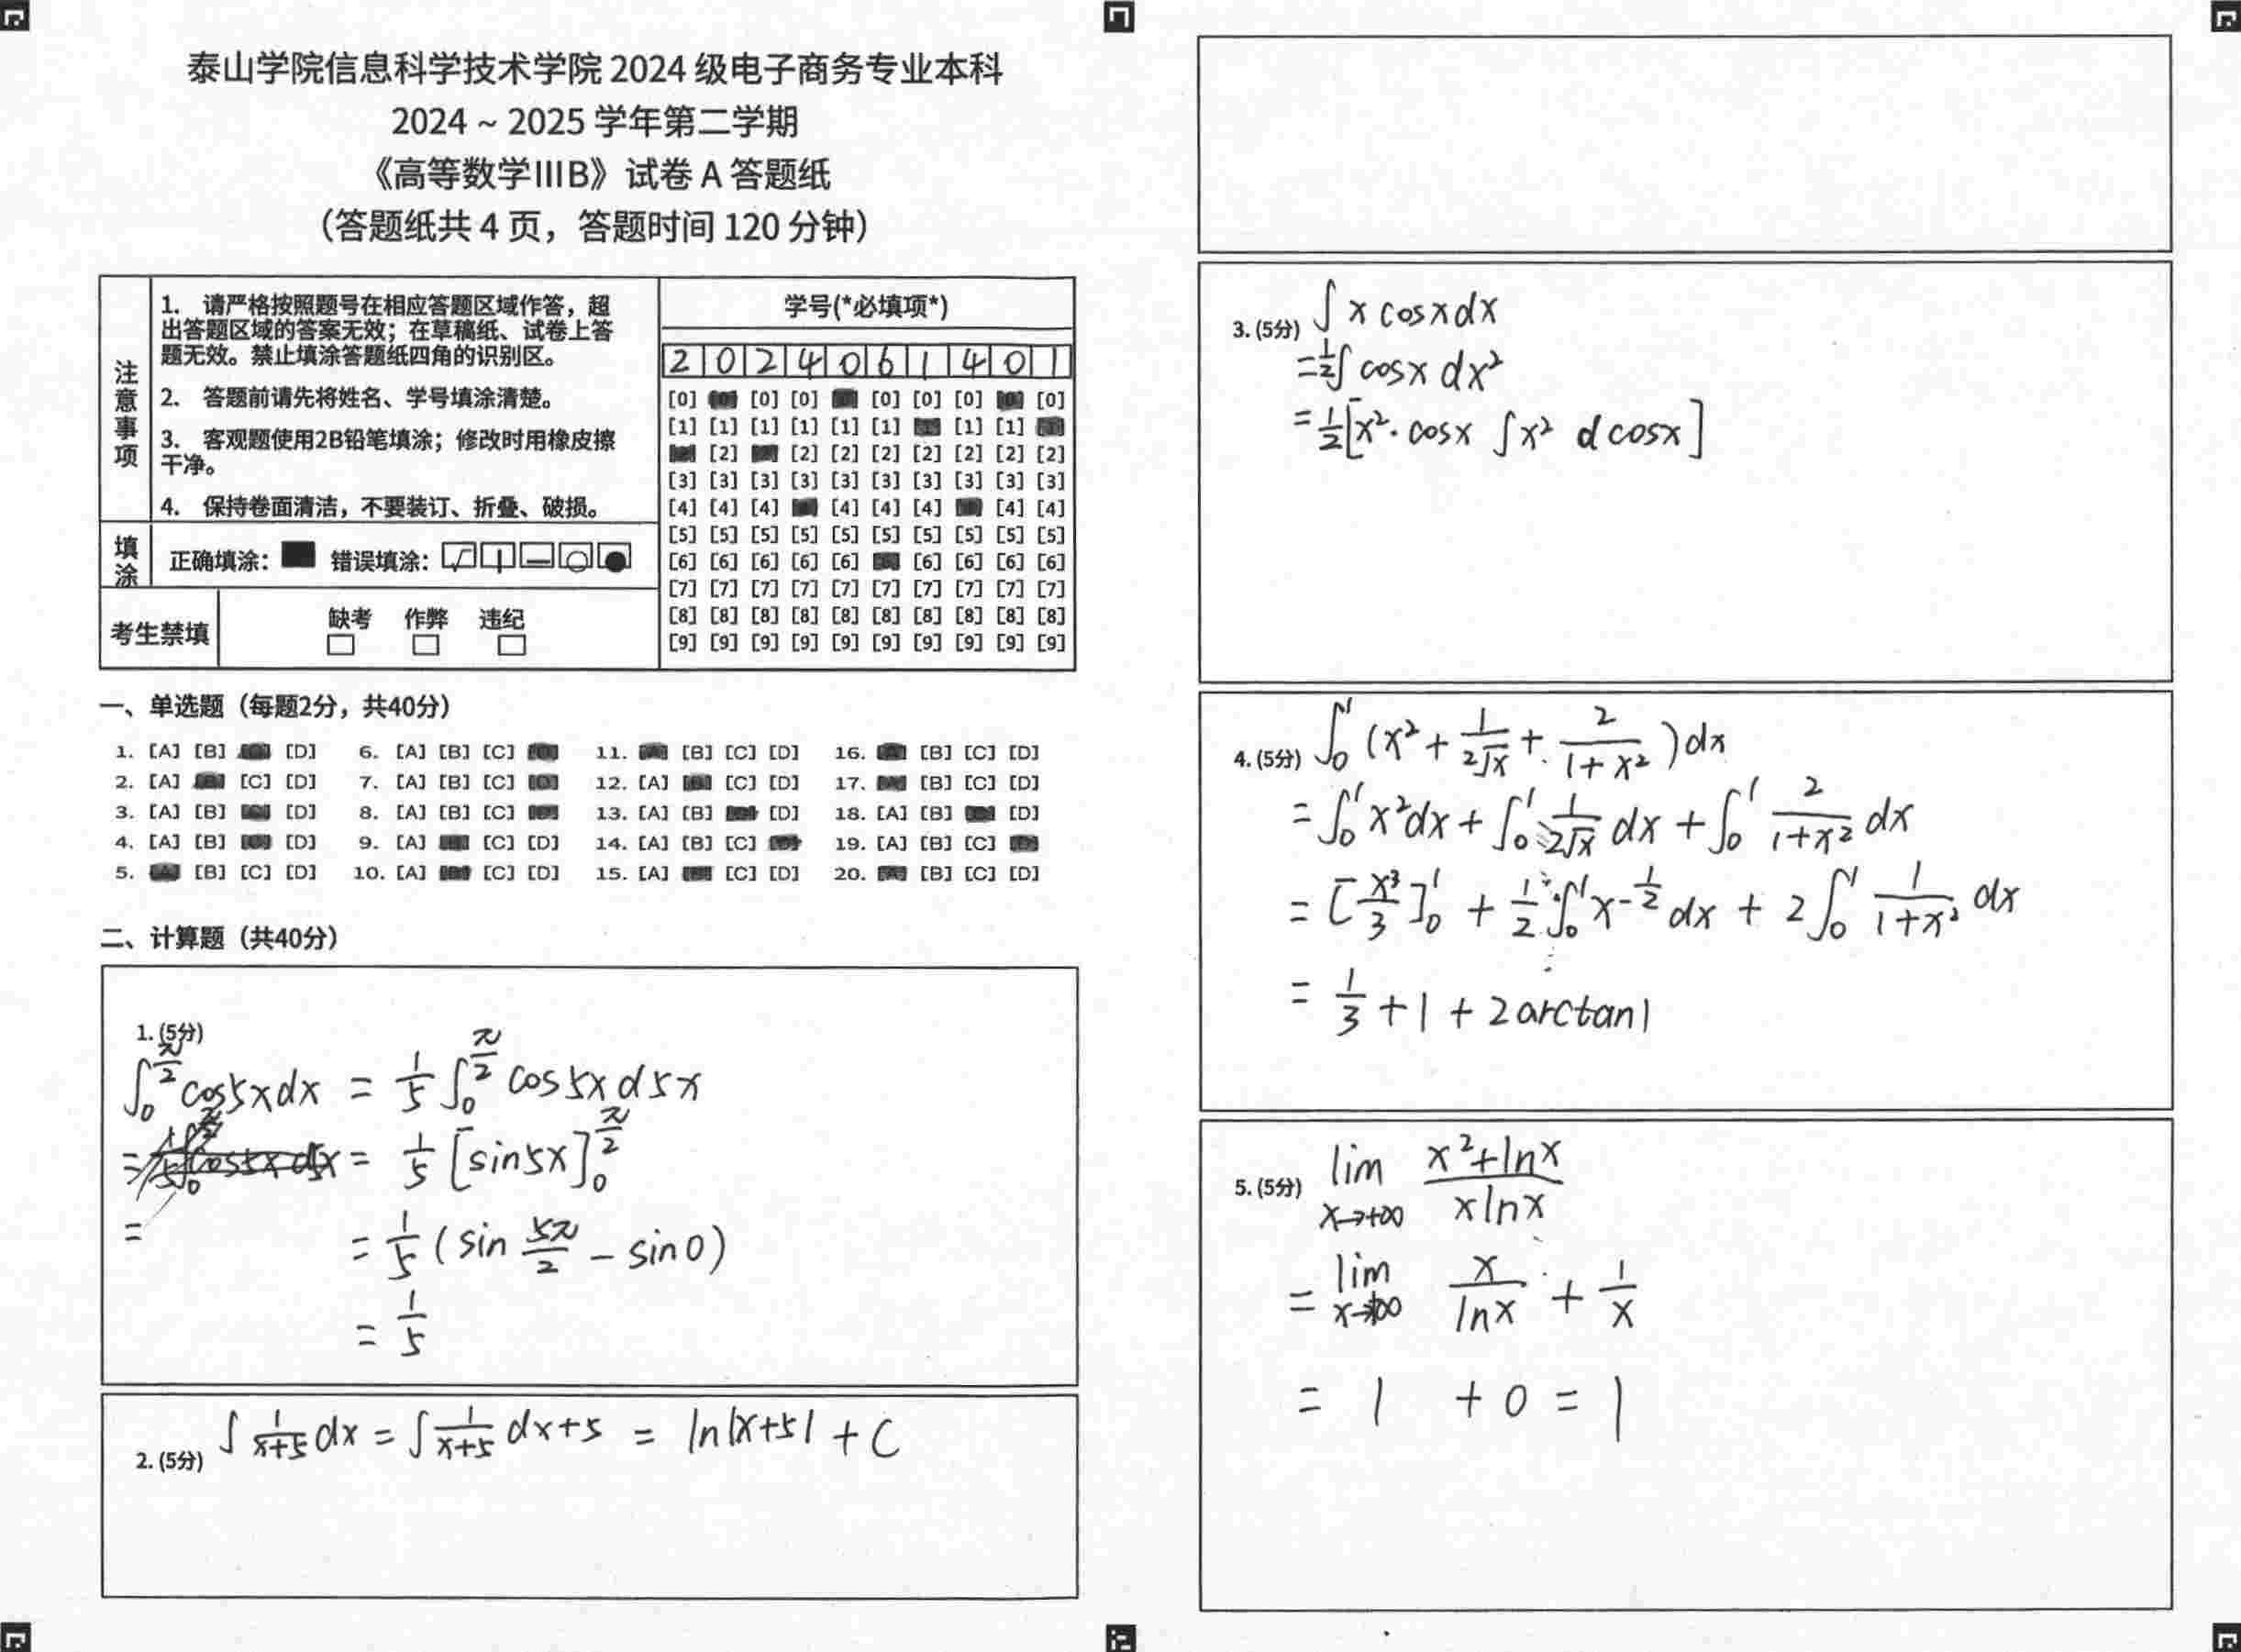 泰山学院信息科学技术学院 2024 级电子商务专业本科
2024 ~ 2025 学年第二学期
《高等数学ⅢB》试卷 A 答题纸
（答题纸共 4 页，答题时间 120 分钟）
注意事项
1. 请严格按照题号在相应答题区域作答，超
出答题区域的答案无效；在草稿纸、试卷上答
题无效。禁止填涂答题纸四角的识别区。
2. 答题前请先将姓名、学号填涂清楚。
3. 客观题使用2B铅笔填涂；修改时用橡皮擦
干净。
4. 保持卷面清洁，不要装订、折叠、破损。
填涂
正确填涂： 错误填涂：
考生禁填
缺考 作弊 违纪
学号(*必填项*)
2 0 2 4 0 6 1 4 0 1
[0] [0] [0] [0] [0] [0] [0]
[1] [1] [1] [1] [1] [1] [1] [1]
[2] [2] [2] [2] [2] [2] [2] [2]
[3] [3] [3] [3] [3] [3] [3] [3] [3] [3]
[4] [4] [4] [4] [4] [4] [4] [4]
[5] [5] [5] [5] [5] [5] [5] [5] [5] [5]
[6] [6] [6] [6] [6] [6] [6] [6] [6]
[7] [7] [7] [7] [7] [7] [7] [7] [7] [7]
[8] [8] [8] [8] [8] [8] [8] [8] [8] [8]
[9] [9] [9] [9] [9] [9] [9] [9] [9] [9]
一、单选题（每题2分，共40分）
1. [A] [B] [D] 6. [A] [B] [C] 11. [B] [C] [D] 16. [B] [C] [D]
2. [A] [C] [D] 7. [A] [B] [C] 12. [A] [C] [D] 17. [B] [C] [D]
3. [A] [B] [D] 8. [A] [B] [C] 13. [A] [B] [D] 18. [A] [B] [D]
4. [A] [B] [D] 9. [A] [C] [D] 14. [A] [B] [C] 19. [A] [B] [C]
5. [B] [C] [D] 10. [A] [C] [D] 15. [A] [C] [D] 20. [B] [C] [D]
二、计算题（共40分）
1. (5分)
∫₀^(π/2) cos5x dx = 1/5 ∫₀^(π/2) cos5x d5x
= = 1/5 [sin5x]₀^(π/2)
= = 1/5 (sin 5π/2 − sin0)
= 1/5
2. (5分) ∫ 1/(x+5) dx = ∫ 1/(x+5) dx+5 = ln|x+5| + C
3. (5分) ∫ x cosx dx
= 1/2 ∫ cosx dx²
= 1/2 [x²·cosx ∫x² d cosx]
4. (5分) ∫₀¹ (x² + 1/(2√x) + 2/(1+x²)) dx
= ∫₀¹ x²dx + ∫₀¹ 1/(2√x) dx + ∫₀¹ 2/(1+x²) dx
= [x³/3]₀¹ + 1/2 ∫₀¹ x^(-1/2) dx + 2∫₀¹ 1/(1+x²) dx
= 1/3 + 1 + 2arctan1
5. (5分) lim x→+∞ (x²+lnx)/(xlnx)
= lim x→+∞ x/lnx + 1/x
= 1 + 0 = 1